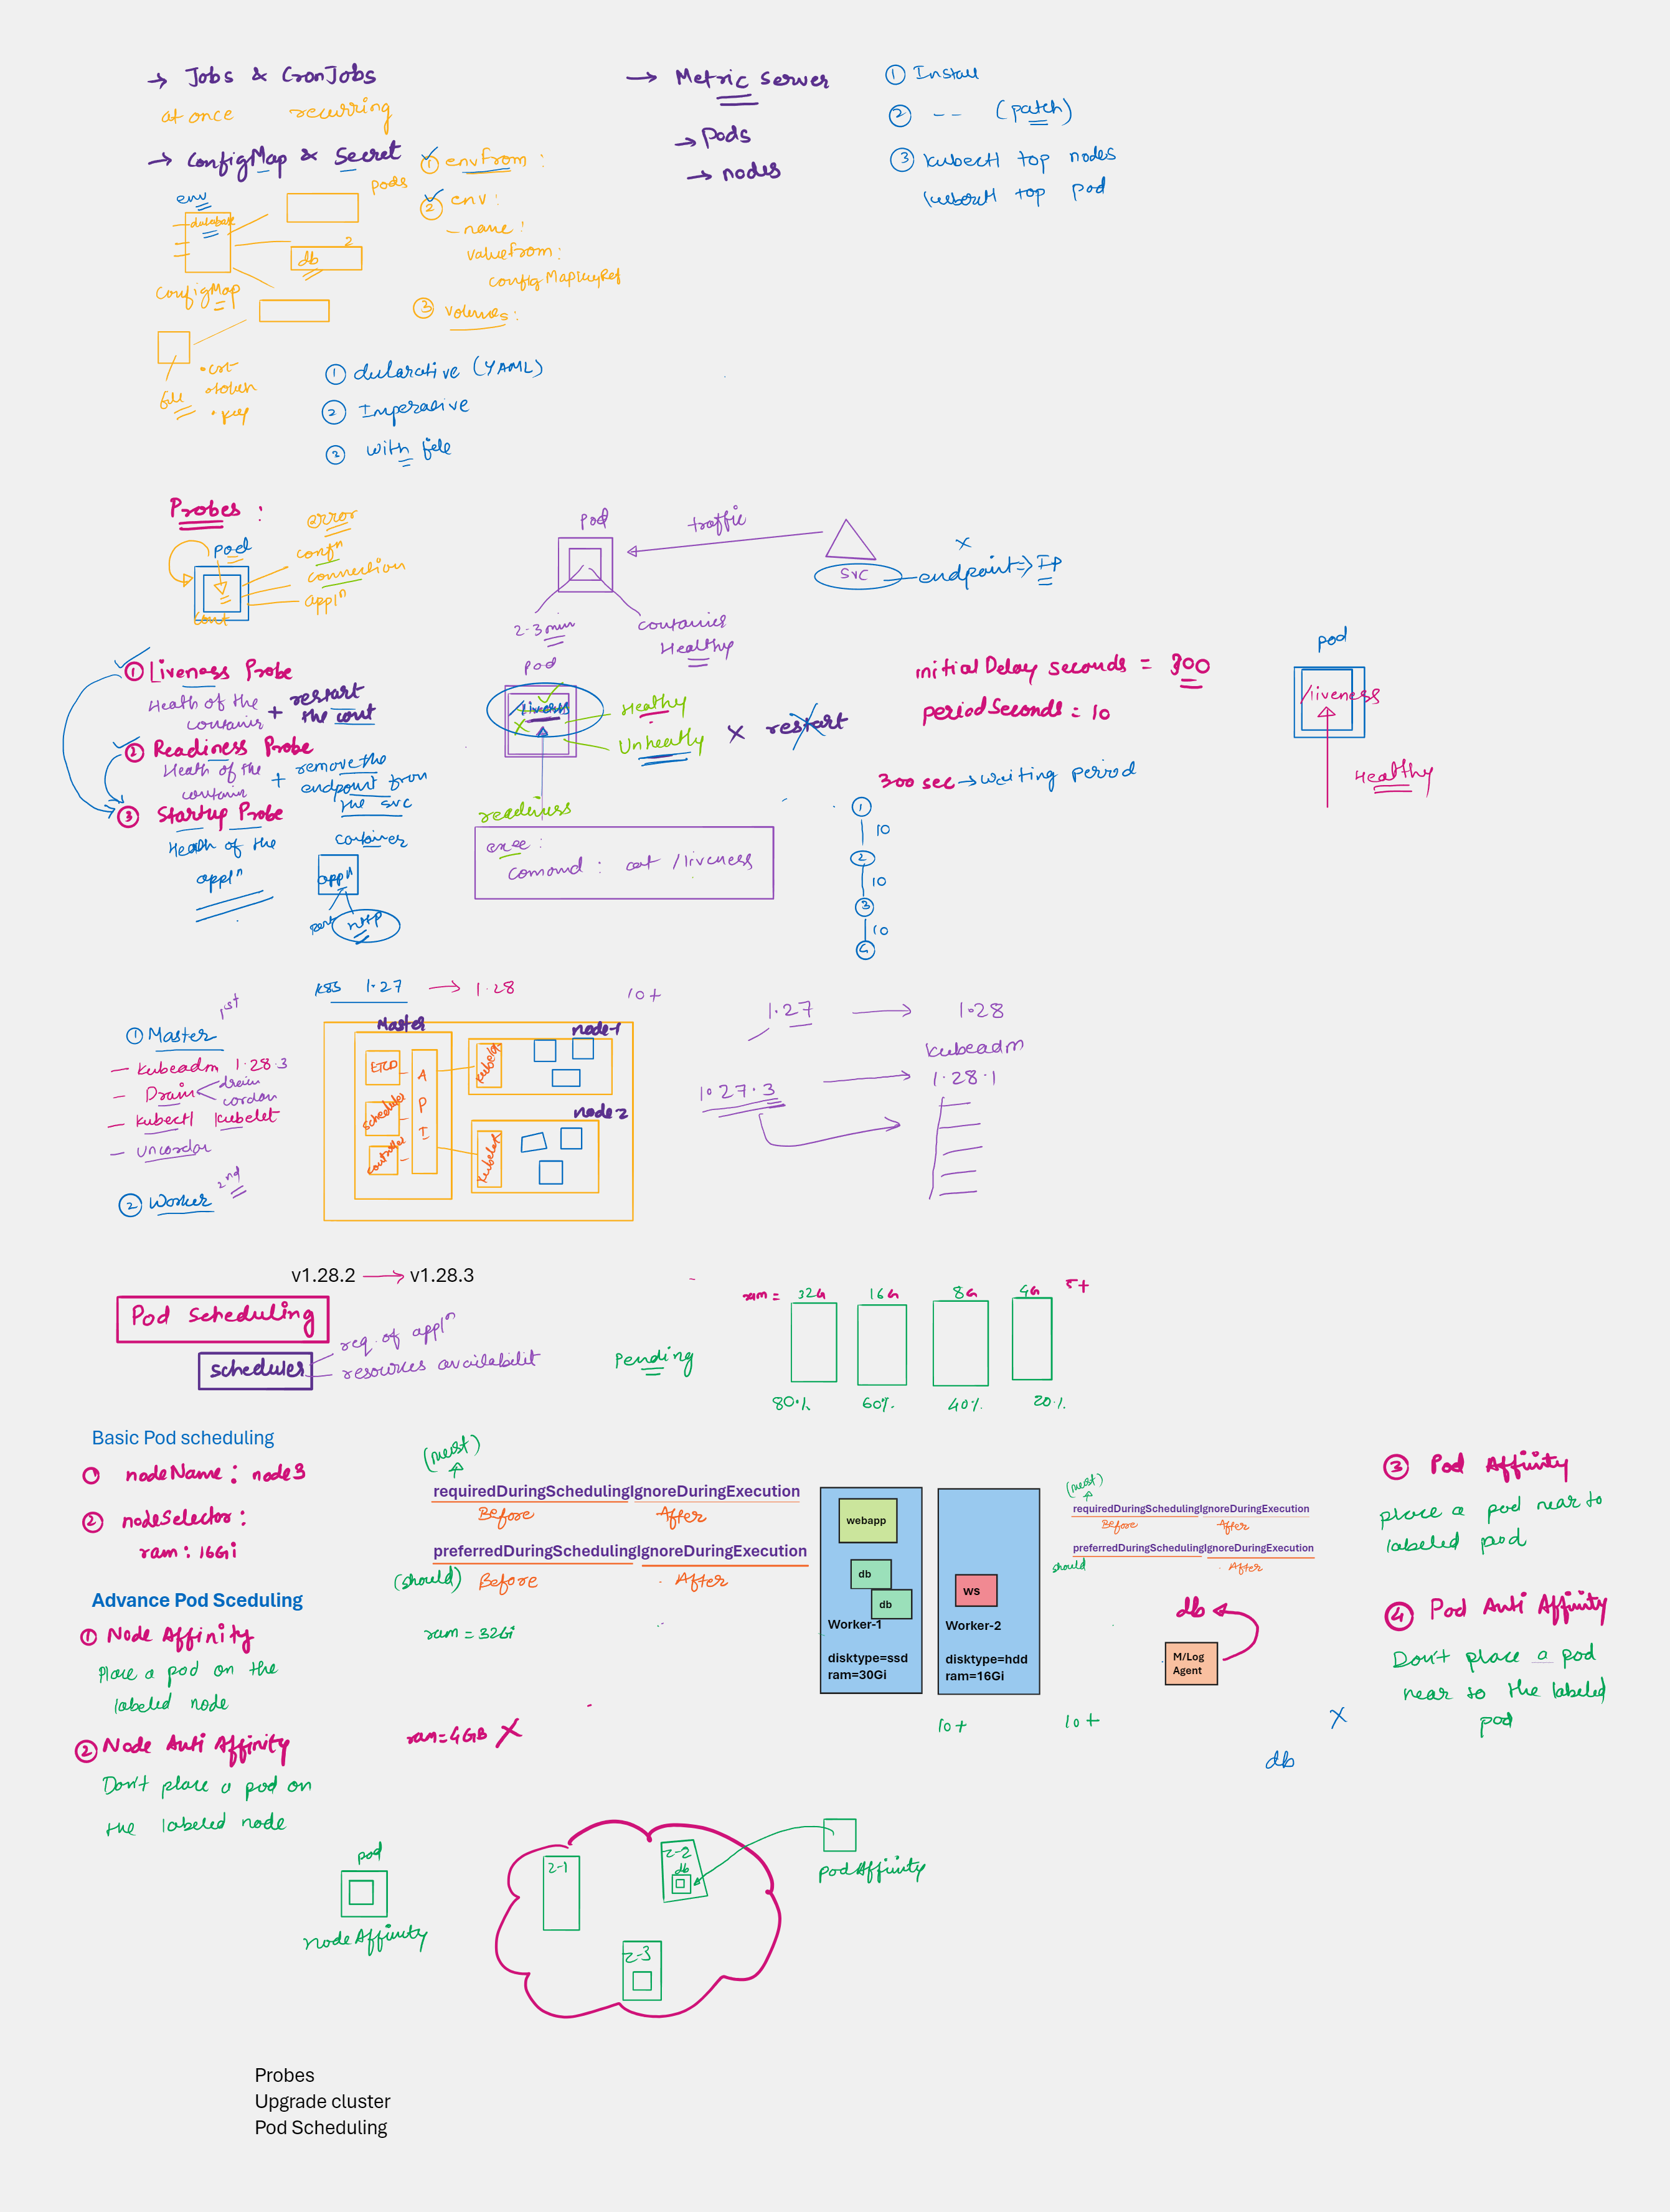 → Jobs & CronJobs
at once recurring
→ ConfigMap & Secret
① envfrom :
pods
env
② env :
database
- name :
2
valuefrom :
db
configMapKeyRef
ConfigMap
③ volumes :
file
• key
① declarative (YAML)
② Imperative
② with file
→ Metric server
→ Pods
→ nodes
① Install
② -- (patch)
③ kubectl top nodes
kubectl top pod
Probes :
error
pod
confⁿ
connection
applⁿ
cont
Pod
traffic
svc
x
endpoint => IP
2-3 min
containers
Healthy
① Liveness Probe
Health of the container + restart the cont
② Readiness Probe
Health of the contain + remove the endpoint from the svc
③ Startup Probe
Health of the
applⁿ
container
applⁿ
port
http
Pod
/liveness
Healthy
x
Unhealthy
X restart
readiness
exec :
comand : cat /liveness
initial Delay seconds = 300
periodSeconds = 10
300 sec → waiting period
①
10
②
10
③
10
④
pod
/liveness
Healthy
K8S 1.27 → 1.28
10+
1st
① Master
- kubeadm 1.28.3
- Drain
drain
cordon
- kubectl kubelet
- uncordon
2nd
② Worker
Master
ETCD
scheduler
controller
A
P
I
node-1
kubelet
node-2
kubelet
1.27 → 1.28
kubeadm
1.27.3 → 1.28.1
v1.28.2 → v1.28.3
Pod Scheduling
scheduler
req. of applⁿ
resources availabilit
Pending
ram = 32G 16G 8G 4G 5+
80% 60% 40% 20%
Basic Pod scheduling
① nodeName : node3
② nodeSelector :
ram : 16Gi
Advance Pod Sceduling
① Node Affinity
Place a pod on the
labeled node
② Node Anti Affinity
Don't place a pod on
the labeled node
(must)
requiredDuringSchedulingIgnoreDuringExecution
Before After
preferredDuringSchedulingIgnoreDuringExecution
(should) Before After
ram = 32Gi
ram = 4GB X
webapp
db
db
Worker-1
disktype=ssd
ram=30Gi
ws
Worker-2
disktype=hdd
ram=16Gi
(must)
requiredDuringSchedulingIgnoreDuringExecution
Before After
preferredDuringSchedulingIgnoreDuringExecution
should After
db
M/Log
Agent
10+ 10+
X
db
③ Pod Affinity
place a pod near to
labeled pod
④ Pod Anti Affinity
Don't place a pod
near to the labeled
pod
pod
nodeAffinity
z-1
z-2
db
z-3
podAffinity
Probes
Upgrade cluster
Pod Scheduling